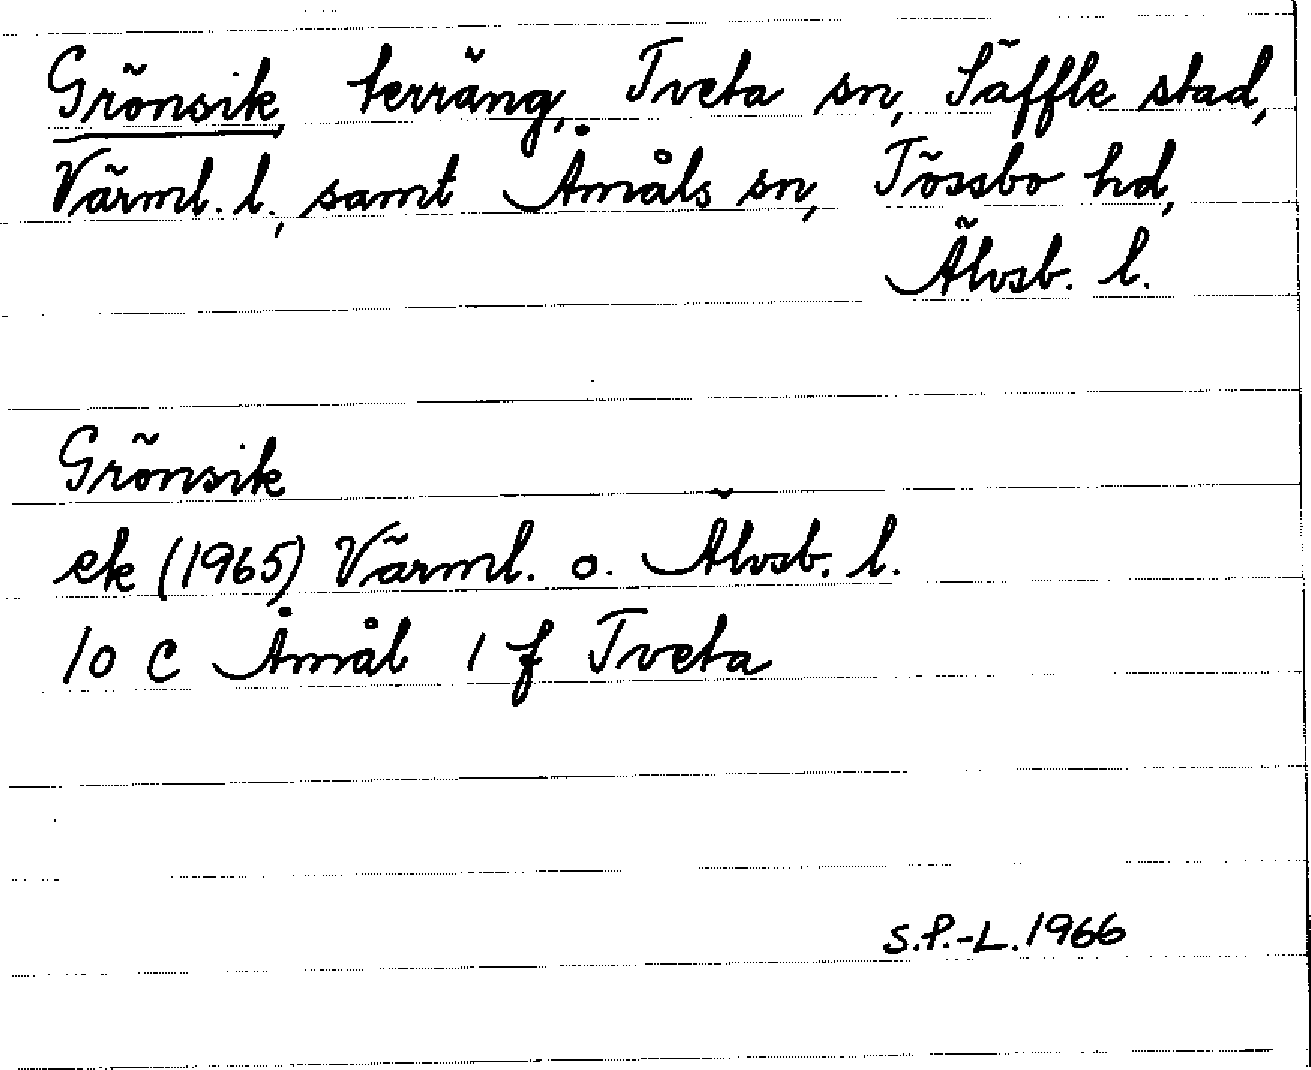 Grönsik, terräng, Tveta sn, Säffle stad,
Värml. l., samt Åmåls sn, Tössbo hd,
Älvsb. l.
Grönsik
ek (1965) Värml. o. Älvsb. l.
10 C Åmål 1 f Tveta
S.P.-L. 1966